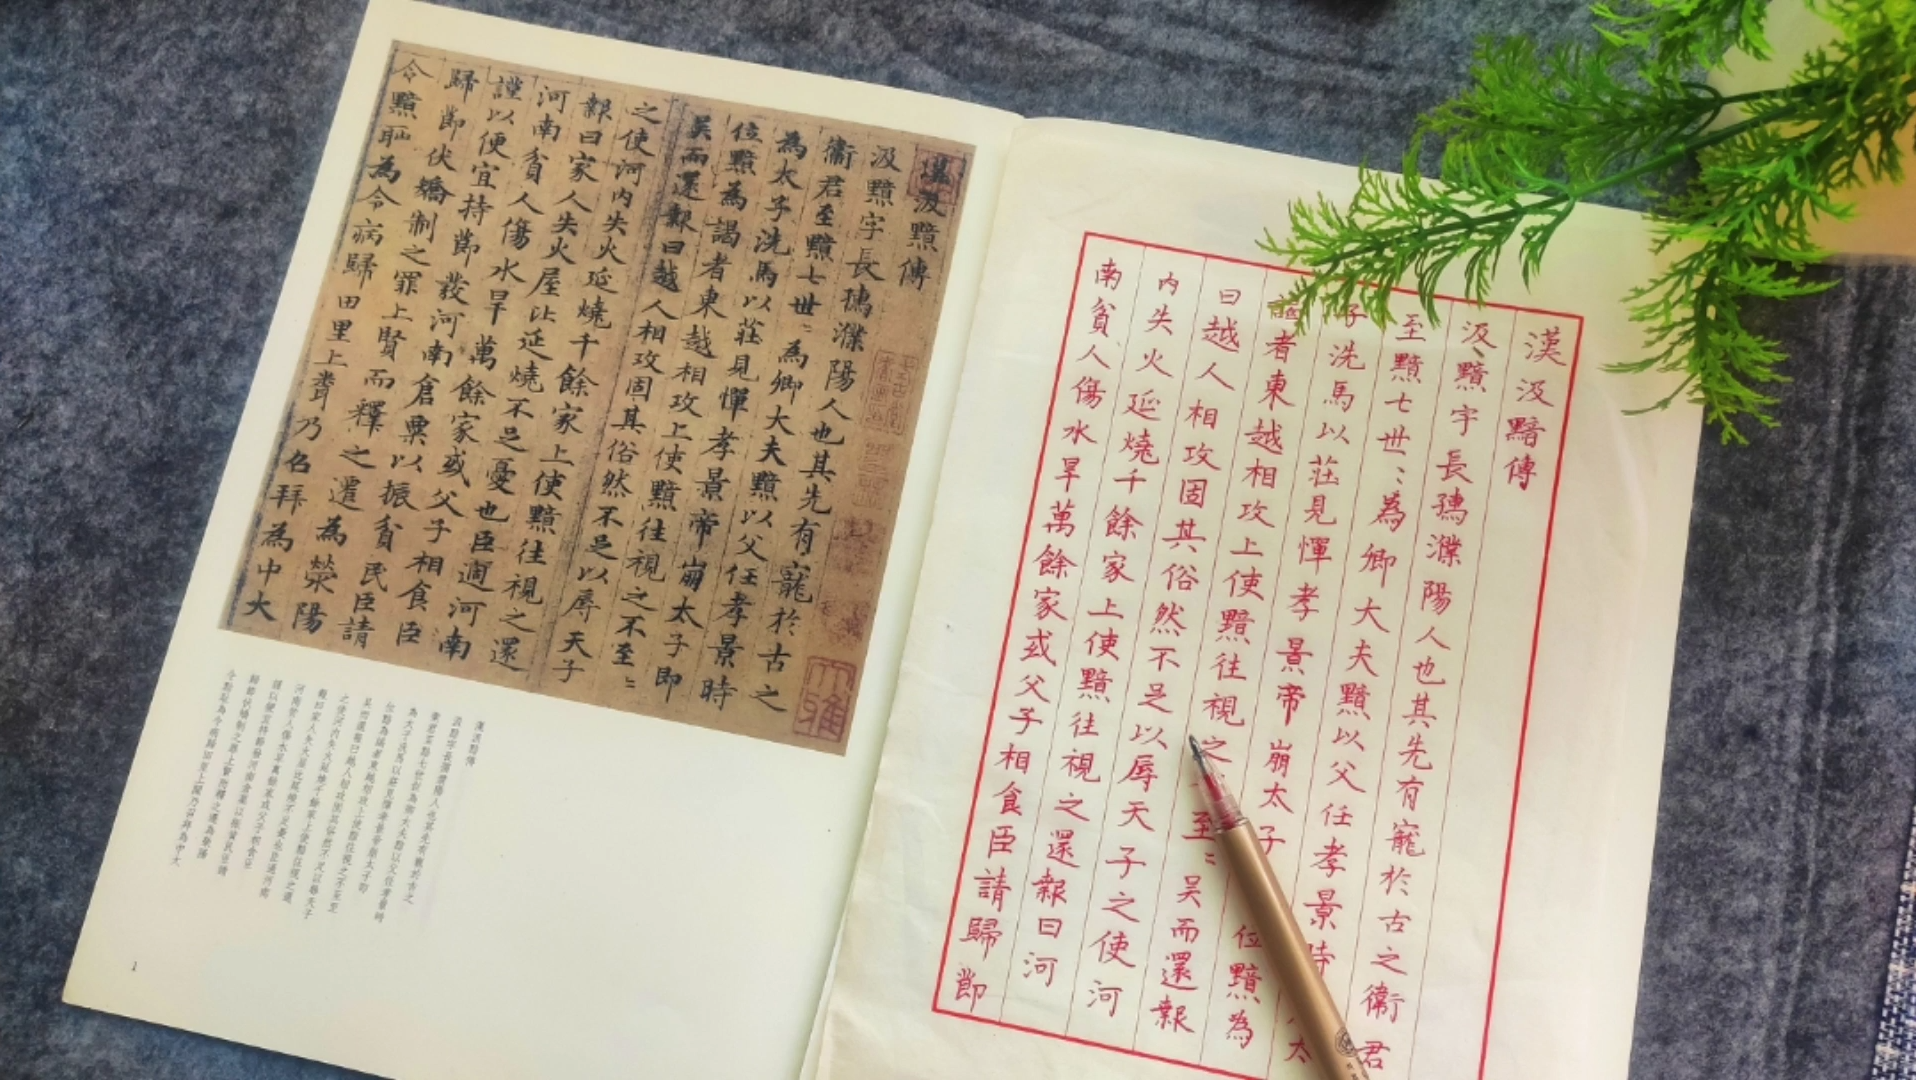 漢汲黯傳
汲黯字長孺濮陽人也其先有寵於古之
衞君至黯七世〻為卿大夫黯以父任孝景時
為太子洗馬以莊見憚孝景帝崩太子即
位黯為謁者東越相攻上使黯往視之不至〻
吳而還報曰越人相攻固其俗然不足以辱天子
之使河内失火延燒千餘家上使黯往視之還
報曰家人失火屋比延燒不足憂也臣過河南
河南貧人傷水旱萬餘家或父子相食臣
謹以便宜持節發河南倉粟以振貧民臣請
歸節伏矯制之罪上賢而釋之遷為滎陽
令黯恥為令病歸田里上聞乃召拜為中大
大雅
漢汲黯傳
汲黯字長孺濮陽人也其先有寵於古之
衞君至黯七世世為卿大夫黯以父任孝景時
為太子洗馬以莊見憚孝景帝崩太子即
位黯為謁者東越相攻上使黯往視之不至至
吳而還報曰越人相攻固其俗然不足以辱天子
之使河内失火延燒千餘家上使黯往視之還
報曰家人失火屋比延燒不足憂也臣過河南
河南貧人傷水旱萬餘家或父子相食臣
謹以便宜持節發河南倉粟以振貧民臣請
歸節伏矯制之罪上賢而釋之遷為滎陽
令黯恥為令病歸田里上聞乃召拜為中大
1
漢汲黯傳
汲黯字長孺濮陽人也其先有寵於古之衞君
至黯七世〻為卿大夫黯以父任孝景時太
子洗馬以莊見憚孝景帝崩太子位黯為
謁者東越相攻上使黯往視之至〻吳而還報
曰越人相攻固其俗然不足以辱天子之使河
内失火延燒千餘家上使黯往視之還報曰河
南貧人傷水旱萬餘家或父子相食臣請歸節